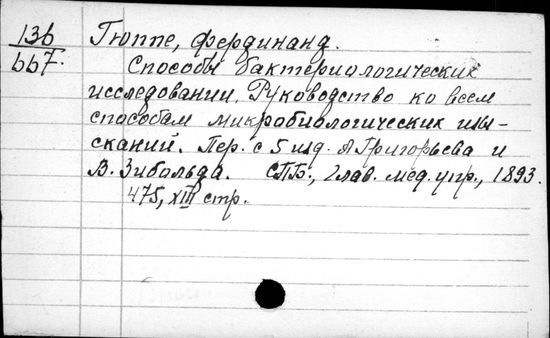 136
667.
Гюппе, Фердинанд.
Способы бактериологических
исследовании. Руководство ко всем
способам микробиологических изы-
сканий. Пер. с 5 изд. А Григорьева и
В. Зибольда. СПБ., Глав. мед. упр., 1893.
475, XIII стр.